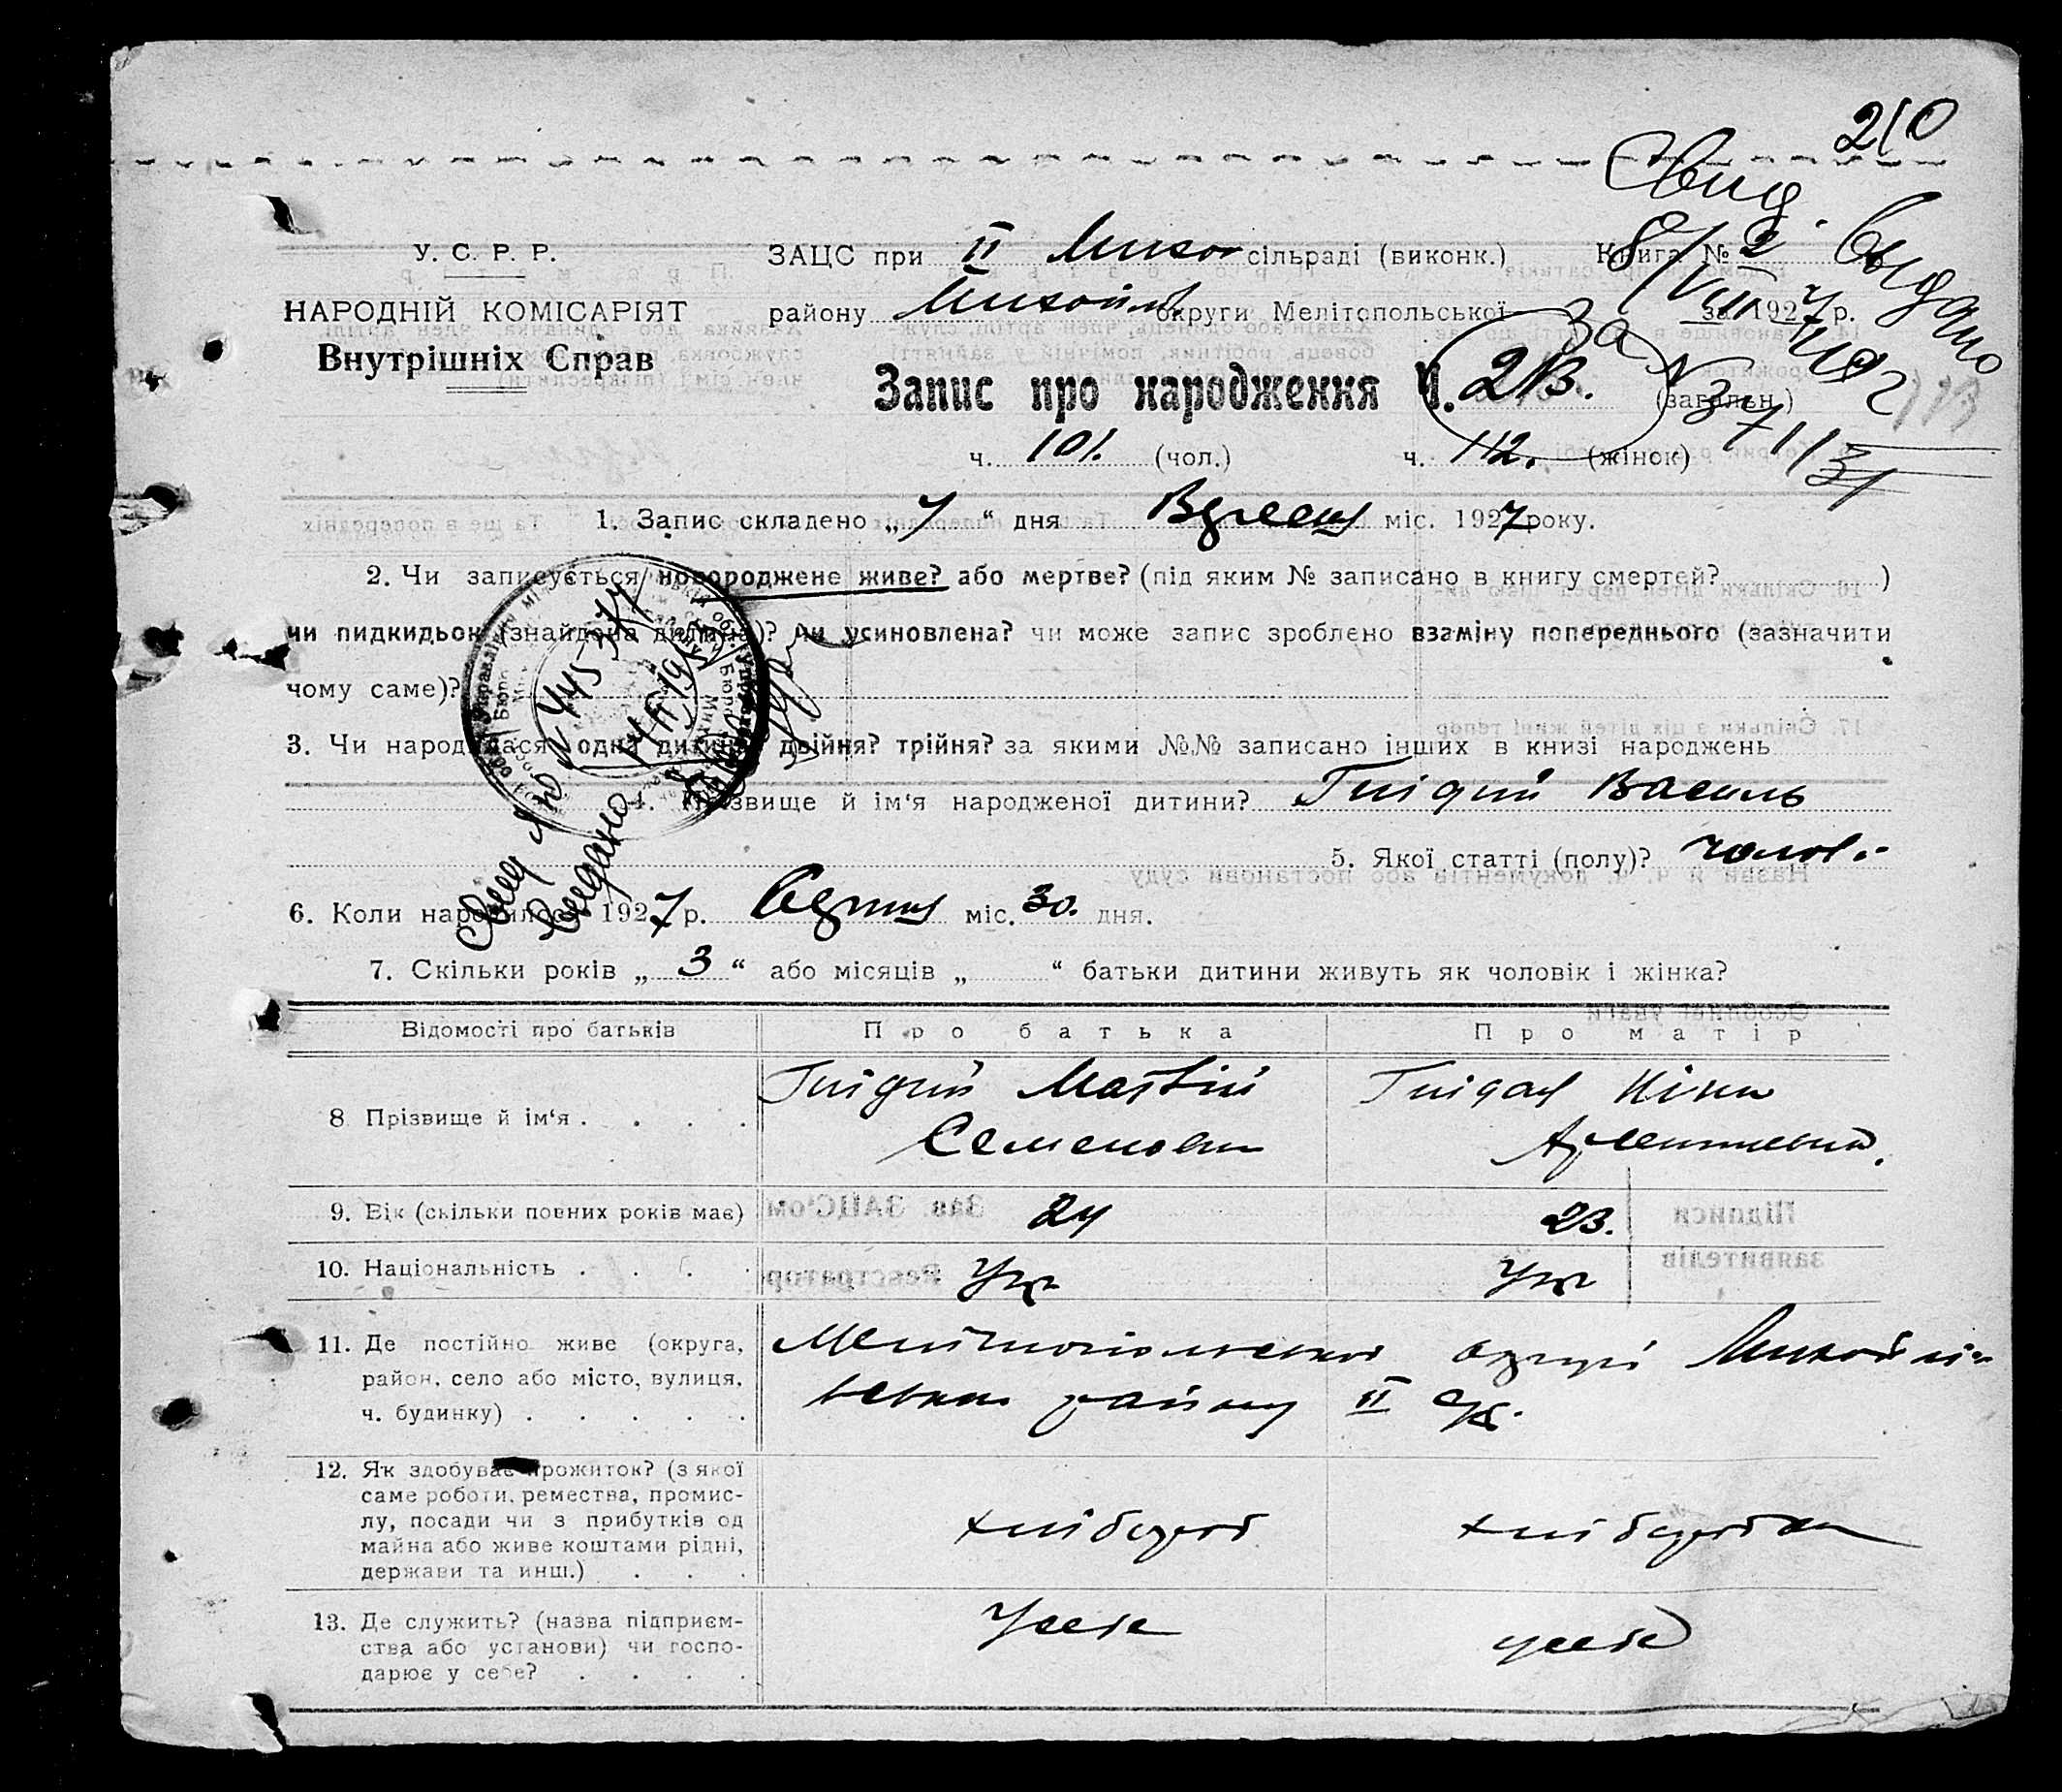 210
Свид. Выдано
У. С. Р. Р.
ЗАЦС при II Михай сільраді (виконк.) Книга № 2
НАРОДНІЙ КОМІСАРІЯТ
району Михайлів округи Мелітопольської за 1927 р.
Внутрішніх Справ
Запис про народження Ч. 213. (загальн.)
ч. 101. (чол.) ч. 112. (жінок)
1. Запис складено „7“ дня Вересня міс. 1927 року.
2. Чи записується новороджене живе? або мертве? (під яким № записано в книгу смертей? )
чи пидкидьок (знайдена дитина)? чи усиновлена? чи може запис зроблено взаміну попереднього (зазначити
чому саме)?
3. Чи народилася одна дитина? двійня? трійня? за якими №№ записано інших в книзі народжень
4. Прізвище й ім‘я народженої дитини? Гнідий Василь
5. Якої статті (полу)? чолов.
6. Коли народилося 1927 р. Серпня міс. 30. дня.
7. Скільки років „3“ або місяців „ “ батьки дитини живуть як чоловік і жінка?
Відомості про батьків Про батька Про матір
8 Прізвище й ім‘я . . . . Гнідий Матвій Гнідая Ніна
Семенович
9. Вік (скільки повних років має) 24 23.
10. Національність . . . . Укр Укр
11. Де постійно живе (округа, Мелітопольської округи Михайлів-
район, село або місто, вулиця, ського району II с/р.
ч. будинку) . . . . .
12. Як здобуває прожиток? (з якої
саме роботи, ремества, промис-
лу, посади чи з прибутків од хлібороб хліборобка
майна або живе коштами рідні,
держави та инш.) . . .
13. Де служить? (назва підприєм- У себе у себе
ства або установи) чи госпо-
дарює у себе? . . . .